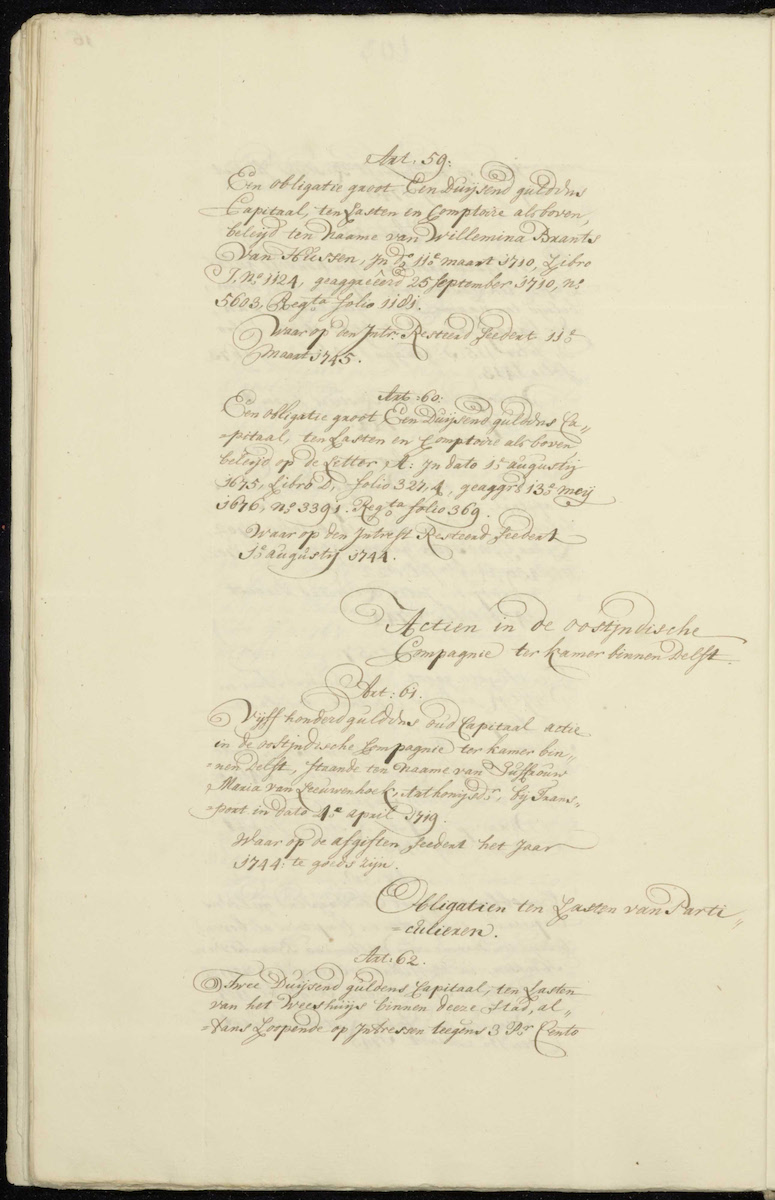 Art: 59:
Een obligatie groot Een Duijsend guldens
Capitaal, ten Lasten en Comptoire als boven
beleijd ten Naame van Willemina Brants
van Hessen, In do. 11e maart 1710, Libro
J. No 1124, geaggreêerd 25 september 1710, no
5603, Regta folio 1181.
Waar op den Intr: Resteerd seedert 11e
maart 1745.
Art: 60:
Een obligatie groot Een Duijsend guldens Ca„
„pitaal, ten Lasten en Comptoire als boven
beleijd op de Letter A: In dato 1e augustij
1675, Libro D, folio 327,4, geaggrd 13e meij
1676, No 3391. Regta folio 369.
Waar op den Intrest Resteerd seedert
1e augustij 1744.
Actien in de oostjndische
Compagnie ter kamer binnen Delft.
Art: 61.
Vijff honderd guldens oud Capitaal actie
in de oostjndische Compagnie ter kamer bin„
„nen Delft, staande ten Naame van Juffrouw
Maria van Leeuwenhoek, Anthonijsdr, bij Trans„
„port in dato 4e april 1719.
Waar op de afgiften seedert het Jaar
1744: te goeds zijn.
Obligatien ten Lasten van Parti„
„culieren.
Art: 62.
Twee Duijsend guldens Capitaal, ten Lasten
van het Weeshuijs binnen deeze stad, al„
„tans Loopende op Intressen teegens 3 Pr Cento